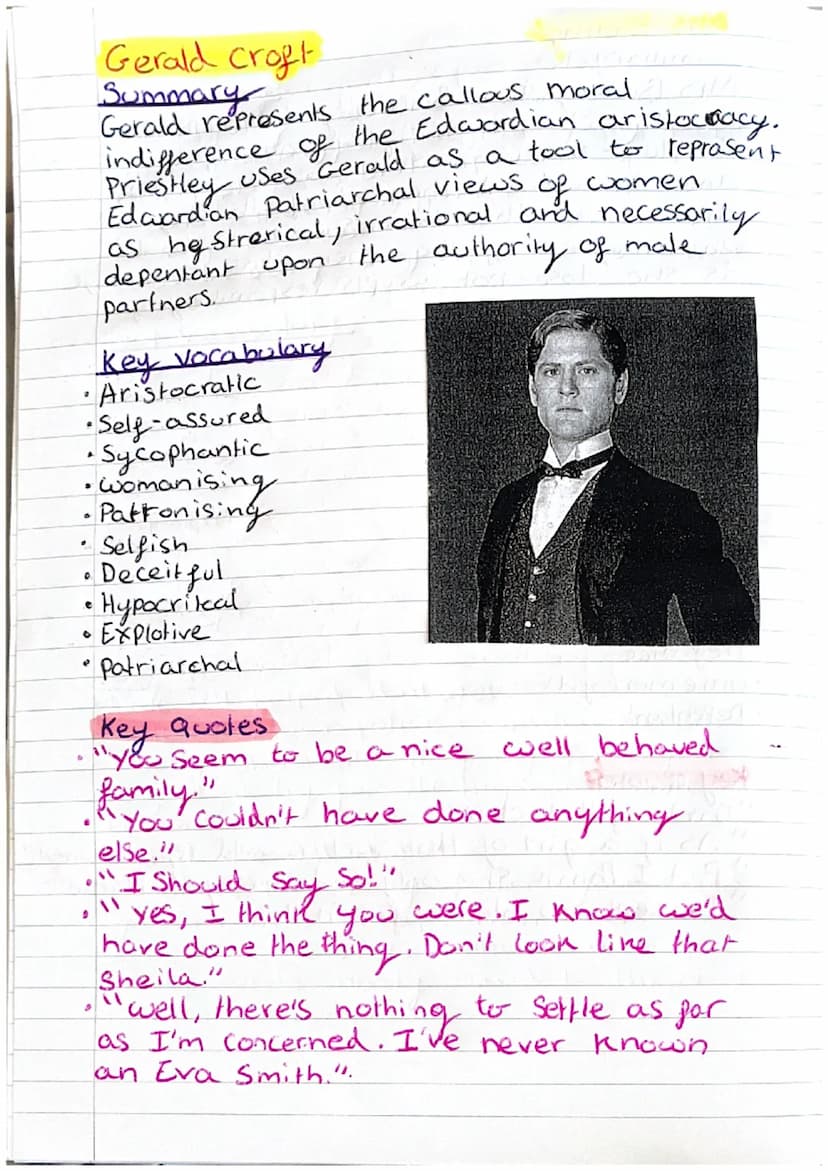 Gerald Croft
Summary
Gerald represents the callous moral
indifference of the Edwardian aristocracy.
Priestley uses Gerald as a tool to reprasent
Edwardian Patriarchal views of women
as hystrerical, irrational and necessarily
depentant upon the authority of male
partners.
Key vocabulary
• Aristocratic
• Self-assured
• Sycophantic
• womanising
• Patronising
• Selfish
• Deceitful
• Hypocritcal
• Explotive
• patriarchal
Key quotes
• "You seem to be a nice well behaved
family."
• "You couldn't have done anything
else."
• "I Should Say So!"
• "Yes, I think you were. I know we'd
have done the thing. Don't look like that
Sheila."
• "Well, there's nothing to settle as far
as I'm concerned. I've never known
an Eva Smith.".